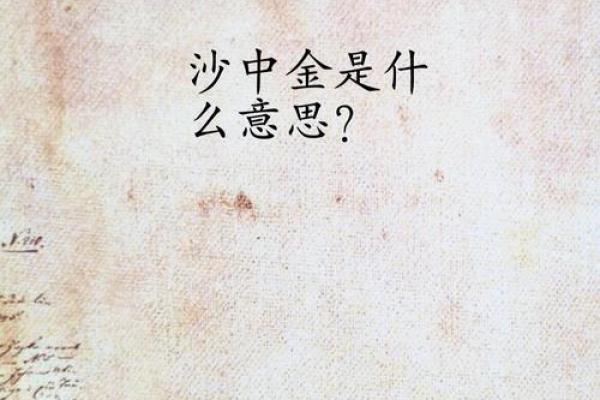 沙中金是什
么意思？